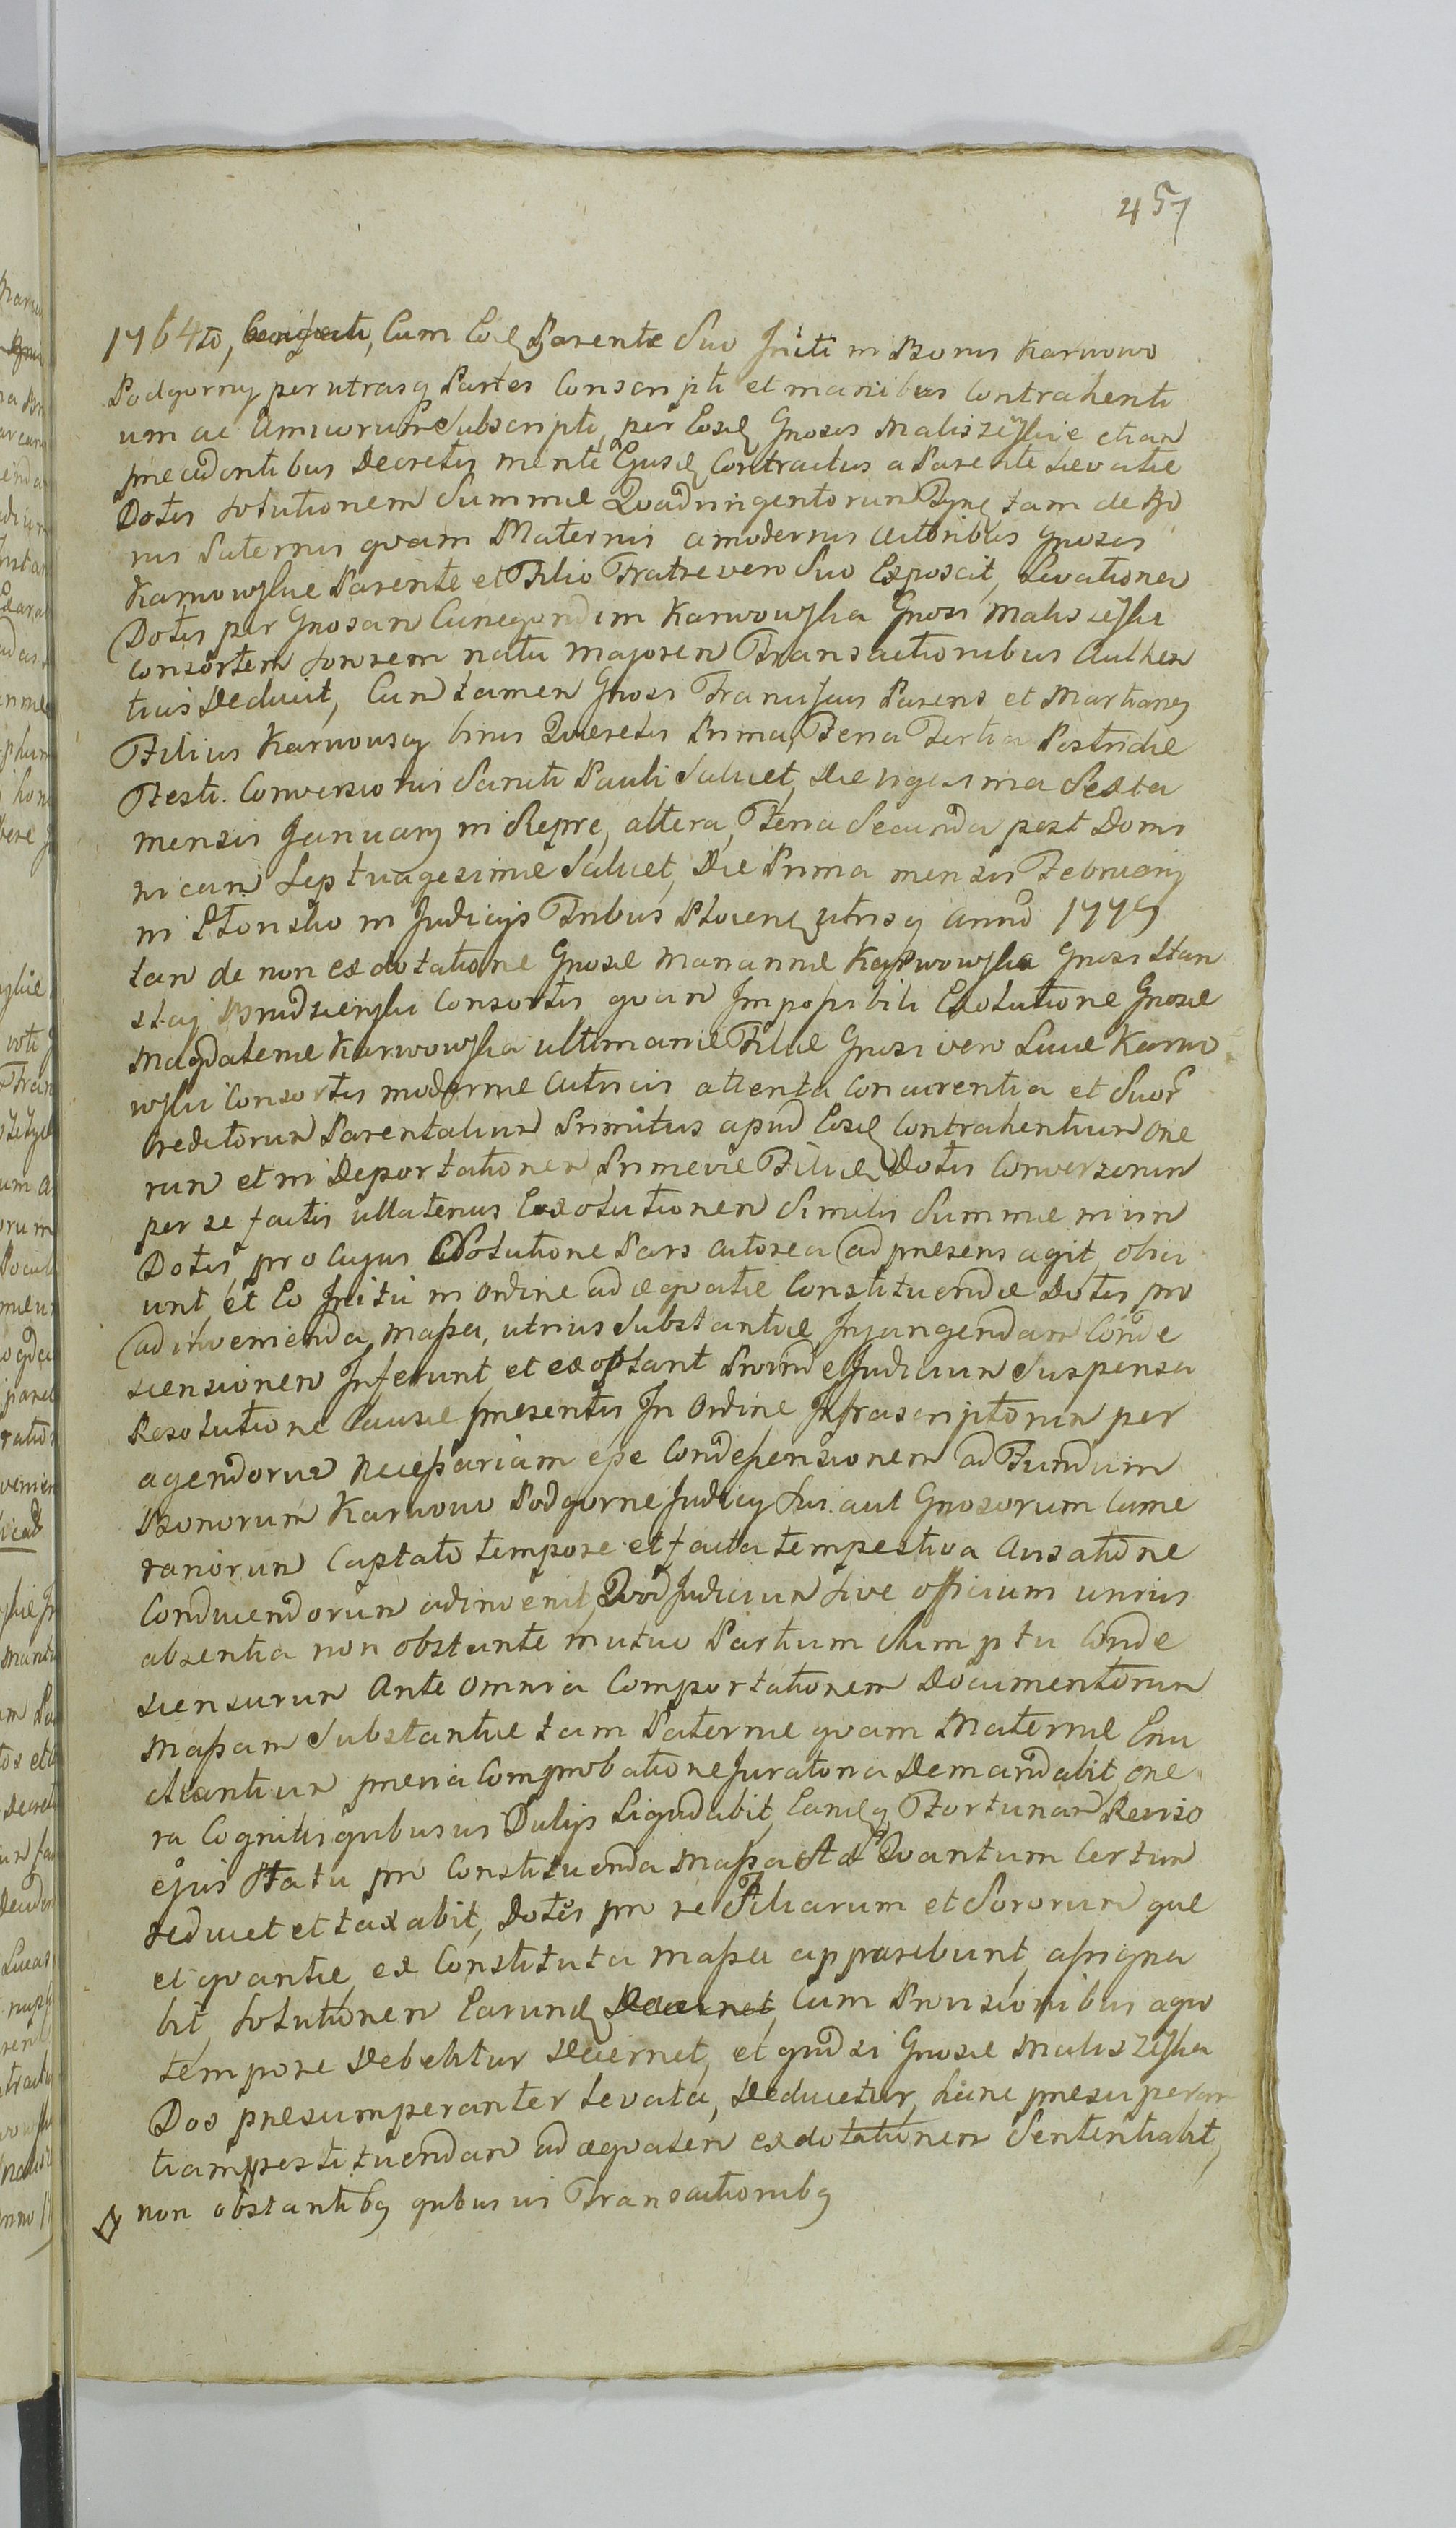 457
1764to, Cum Eod Parente Suo Initi in Bonis Karwowo
Podgorny per utrasq Partes Conscripti et manibus Contrahenti
um ac Amicorum Subscripti, per Eosd Gnosos Maliszeÿskie etian
precedentibus Decretis menti Ejusd Contractus a Parente Levatæ
Dotis Solutionem Summæ Quadringentorum Tynf tam de Bo
nis Paternis qvam Maternis a modernis Actoribus Gnosis
Karwowskie Parente et Filio Fratre vero Suo Exposcit, Levationen
Dotis per Gnosan Cunegondim Karwowska Gnosi Maliszeÿski
Consortem Sororem natu majoren Transactionibus Authen
ticis Deducit, Cum tamen Gnosi Franciscus Parens et Martianq
Filius Karwowscy binis Decretis Prima, Feria Tertia Postridie
Festi. Conversionis Sancti Pauli Saluet, Die vigesima Sexta
mensis Januarij in Repre, altera, Feria Secunda post Domi
nican Septuagesimæ Saluet, Die Prima mensis Februarij
in Ptonsko in Judicijs Tribus Plocens utrisq Anno 1779
tan de non exdotatione Gnosæ Mariannæ Karwowska Gnosi Stan
slaj Brudzienski Consortis qvan Impossibili Exolutione Gnosæ
Magdalenæ Karwowska ultimariæ Filiæ Gnosi vero Lucæ Karwo
wski Consortis modernæ Actricis attenta Concurrentia et Suor
Creditorun Parentaliun Primitus apud Eosd Contrahentiun One
run et in Deportationen Primeviæ Filiæ Dotis Conversorun
per se factis ullatenus Exolutionen Similis Summæ in
Dotis, pro Cujus Solutione Pars Actorea ad presens agit, obici
unt et Eo Initu in Ordine adæqvatæ Constituendæ Dotis pro
adinvenienda Massa, utrius Substantiæ Injungendam Conde
scensionen Inferunt et exoptant Proinde Judiciun Suspensa
Resolutione Causæ presentis In Ordine Infrascriptorun per
agendorun Necessariam esse Condescensionem ad Fundum
Bonorum Karwowo Podgorne Judicij Sui. aut Gnosorum Came
rariorun Captato tempore et facta tempestiva Avisatione
Conducendorun adinvenit, Qvod Judiciun Sive officium unius
absentia non obstante mutuo Partium Sumptu Conde
scensurun Ante Omnia Comportationem Documentorun
Massam Substantiæ tam Paternæ qvam Maternæ Enu
cleantiun previa Comprobatione Juratoria Demandabit, One
ra Cognitis qvibusvis Liqvidabit, Eamq Fortunan Reviso
ejus Statu pro Constituenda Massa Ad Qvantum Certum
reducet et taxabit, Dotes pro re Filiarum et Sororum qvæ
et qvantæ ex Constituta Massa apparebunt, assigna
bit, Solutionen Earund Decernet Cum Provisionibus a qvo
tempore Debebitur Decernet, et qvod si Gnosæ Maliszeÿska
Dos presumperanter levata, Deducetur, hanc presuperan
tiam restituendan ad æqvalen exdotationen Sententiabit,
non obstantibq qvibusvis Transactionibq